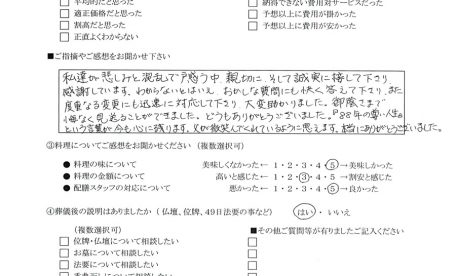 □ 平均的だと思った □ 納得できない費用対サービスだった
□ 適正価格だと思った □ 予想以上に費用が掛かった
□ 割高だと思った □ 予想以上に費用が安かった
□ 正直よくわからない
■ご指摘やご感想をお聞かせ下さい
私達が悲しみと混乱で戸惑う中、親切に、そして誠実に接して下さり
感謝しています。わからないとはいえ、おかしな質問にも快く答えて下さり、また
度重なる変更にも迅速に対応して下さり、大変助かりました。御蔭さまで
悔なく見送ることができました。どうもありがとうございました。『88年の尊い人生』
という言葉が今も心に残ります。父が微笑んでくれているように思えます。本当にありがとうございました。
③料理についてご感想をお聞かせください（複数選択可）
● 料理の味について 美味しくなかった← 1・2・3・4・5→美味しかった
● 料理の金額について 高いと感じた← 1・2・3・4・5→割安と感じた
● 配膳スタッフの対応について 悪かった← 1・2・3・4・5→良かった
④葬儀後の説明はありましたか（仏壇、位牌、49日法要の事など） はい・いいえ
（複数選択可） ■その他ご質問等が有りましたご記入ください
□ 位牌・仏壇について相談したい
□ お墓について相談したい
□ 法要について相談したい